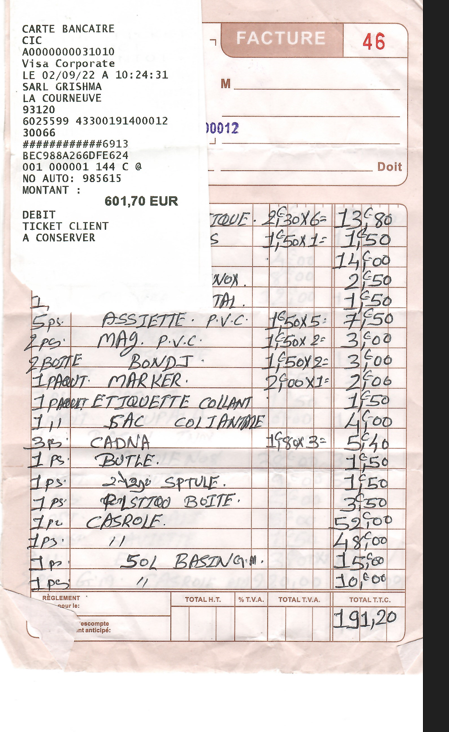 CARTE BANCAIRE
CIC
A0000000031010
Visa Corporate
LE 02/09/22 A 10:24:31
SARL GRISHMA
LA COURNEUVE
93120
6025599 43300191400012
30066
############6913
BEC988A266DFE624
001 000001 144 C @
NO AUTO: 985615
MONTANT :
601,70 EUR
DEBIT
TICKET CLIENT
A CONSERVER
FACTURE 46
M
00012
Doit
TIQUE. 2€30x6= 13€80
S 1€50x1= 1€50
14€00
NOX. 2€50
1 TAL. 1€50
5ps. ASSIETTE. P.V.C. 1€50x5= 7€50
2ps. MAG. P.V.C. 1€50x2= 3€00
2BOITE BONDJ. 1€50x2= 3€00
1PAQUT. MARKER. 2€00x1= 2€00
1PAQUET ETIQUETTE COLLANT 1€50
1 11 SAC COLIANTNE 4€00
3ps. CADNA 1€80x3= 5€40
1ps. BUTLE. 1€50
1ps. SPTULE. 1€50
1ps. BOITE. 3€50
1pc CASROLE. 52€00
1ps. 11 48€00
1ps. 50L BASING.M. 15€00
1pcs 11 10€00
RÈGLEMENT
pour le:
escompte
nt anticipé:
TOTAL H.T. % T.V.A. TOTAL T.V.A. TOTAL T.T.C.
191,20